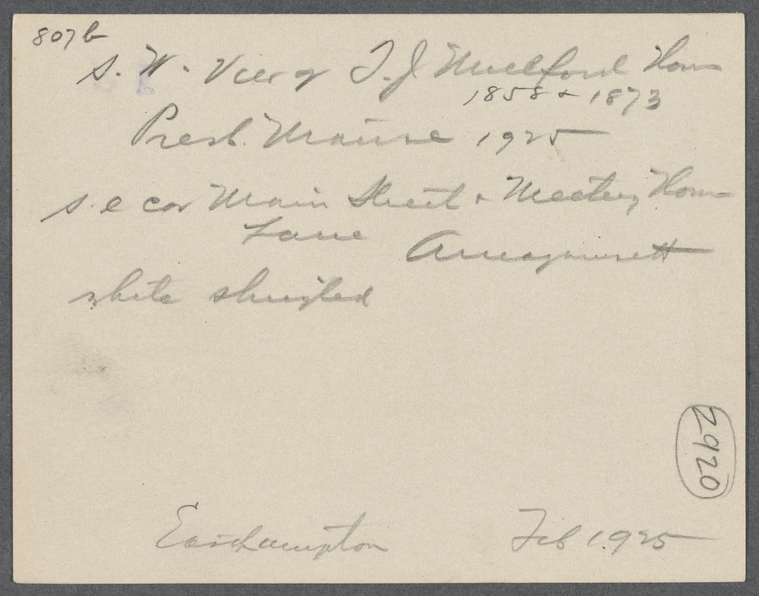 807b
S. W. View of T. J. Mulford House
1858 & 1873
Presb. Manse 1925
s. e cor Main Street & Meeting House
Lane Amagansett
white shingled
2920
Easthampton Feb 1925